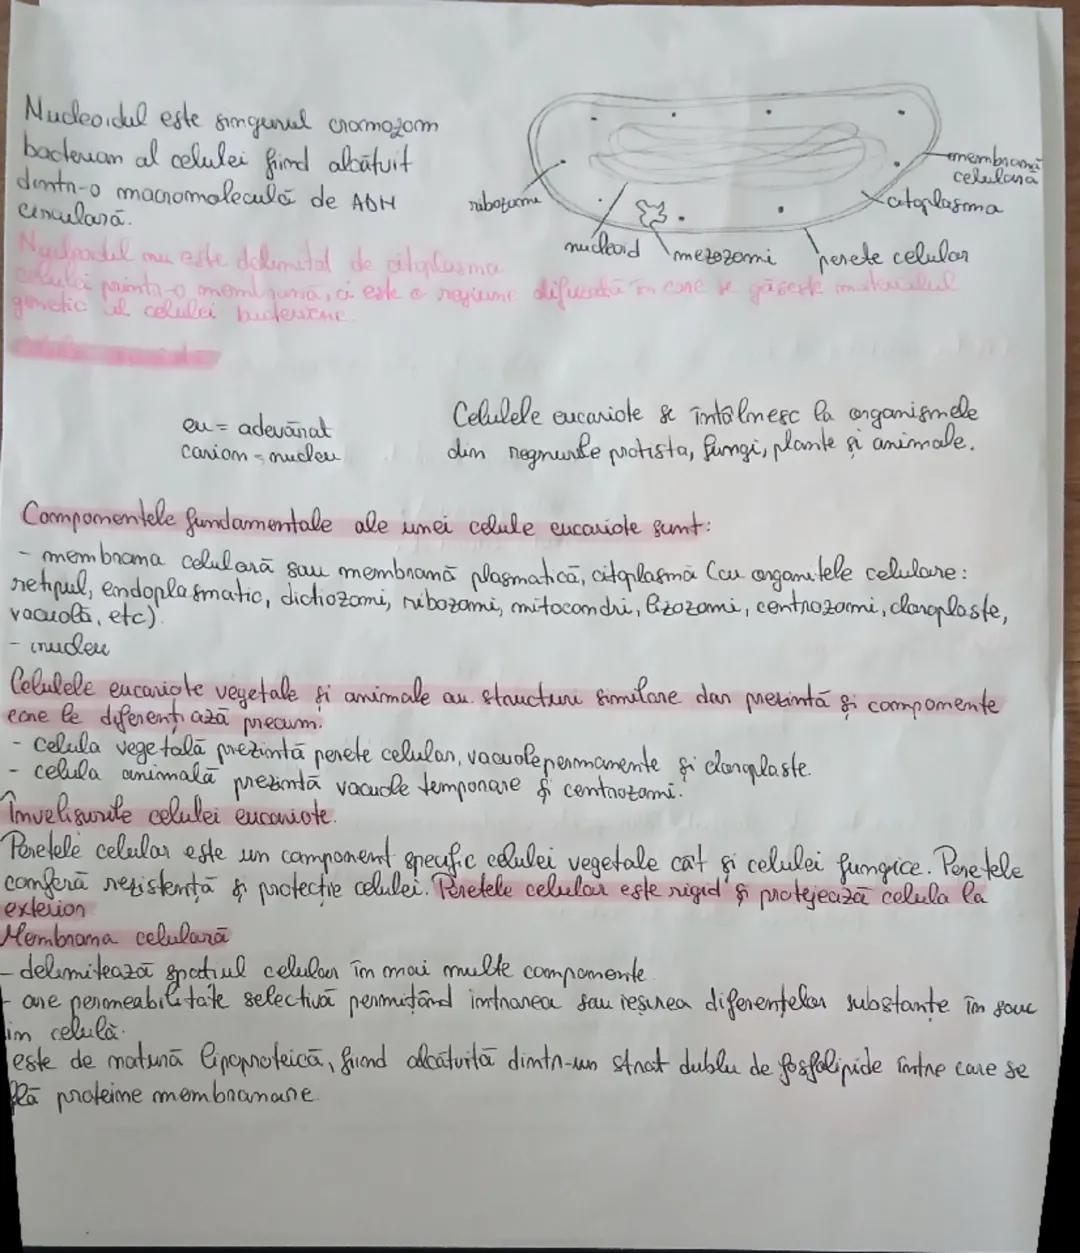 Nucleoidul este singurul cromozom
bacterian al celulei fiind alcătuit
dintr-o macromoleculă de ADN
circulară.
ribozomi
nucleoid
mezozomi
perete celular
citoplasma
membrană
celulară
Nucleoidul nu este delimitat de citoplasma
celulei printr-o membrană, ci este o regiune difuzată în care se găsește materialul
genetic al celulei bacteriene.
eu = adevărat
carion = nucleu
Celulele eucariote se întâlnesc la organismele
din regnurile protista, fungi, plante și animale.
Componentele fundamentale ale unei celule eucariote sunt:
- membrana celulară sau membrană plasmatică, citoplasmă (cu organitele celulare:
retipul, endoplasmatic, dictiozomi, ribozomi, mitocondri, lizozomi, centrozomi, cloroplaste,
vacuolă, etc)
- nucleu
Celulele eucariote vegetale și animale au structuri similare dar prezintă și componente
care le diferențiază precum:
- celula vegetală prezintă perete celular, vacuole permanente și cloroplaste.
- celula animală prezintă vacuole temporare și centrozomi.
Învelișurile celulei eucariote.
Peretele celular este un component specific celulei vegetale cât și celulei fungice. Peretele
conferă rezistență și protecție celulei. Peretele celular este rigid și protejează celula la
exterior
Membrana celulară
- delimitează spațiul celular în mai multe componente
- are permeabilitate selectivă permițând intrarea sau ieșirea diferențelor substanțe în sau
in celulă.
este de natură lipoproteică, fiind alcătuită dintr-un strat dublu de fosfolipide între care se
flă proteine membranare.